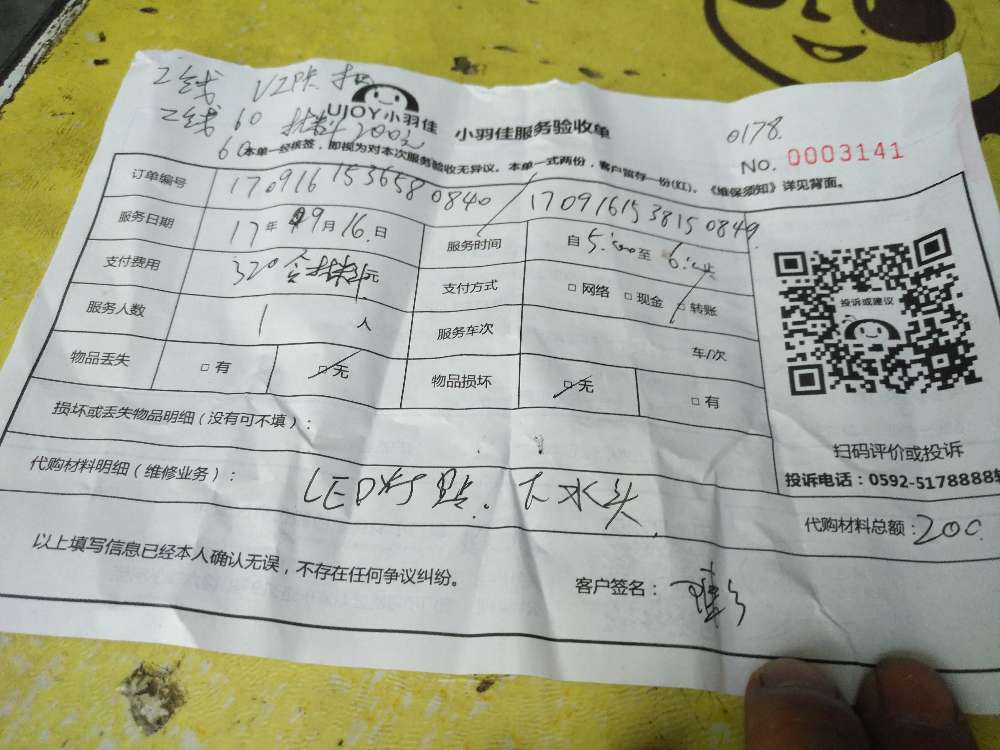 工线
工线 60 材料200元
60
UJOY小羽佳 小羽佳服务验收单
0178.
No. 0003141
本单一经核签，即视为对本次服务验收无异议。本单一式两份，客户留存一份(红)。《维保须知》详见背面。
订单编号 170916153658 0840 / 170916153815 0849
服务日期 17年 9月 16.日 服务时间 自 5:00 至 6:
支付费用 320含材料元 支付方式 □ 网络 □ 现金 □ 转账
服务人数 1 人 服务车次 车/次
物品丢失 □ 有 □ 无 物品损坏 □ 无 □ 有
投诉或建议
损坏或丢失物品明细（没有可不填）：
扫码评价或投诉
代购材料明细（维修业务）： LED灯贴. 下水头
投诉电话：0592-5178888
代购材料总额：200.
以上填写信息已经本人确认无误，不存在任何争议纠纷。
客户签名：